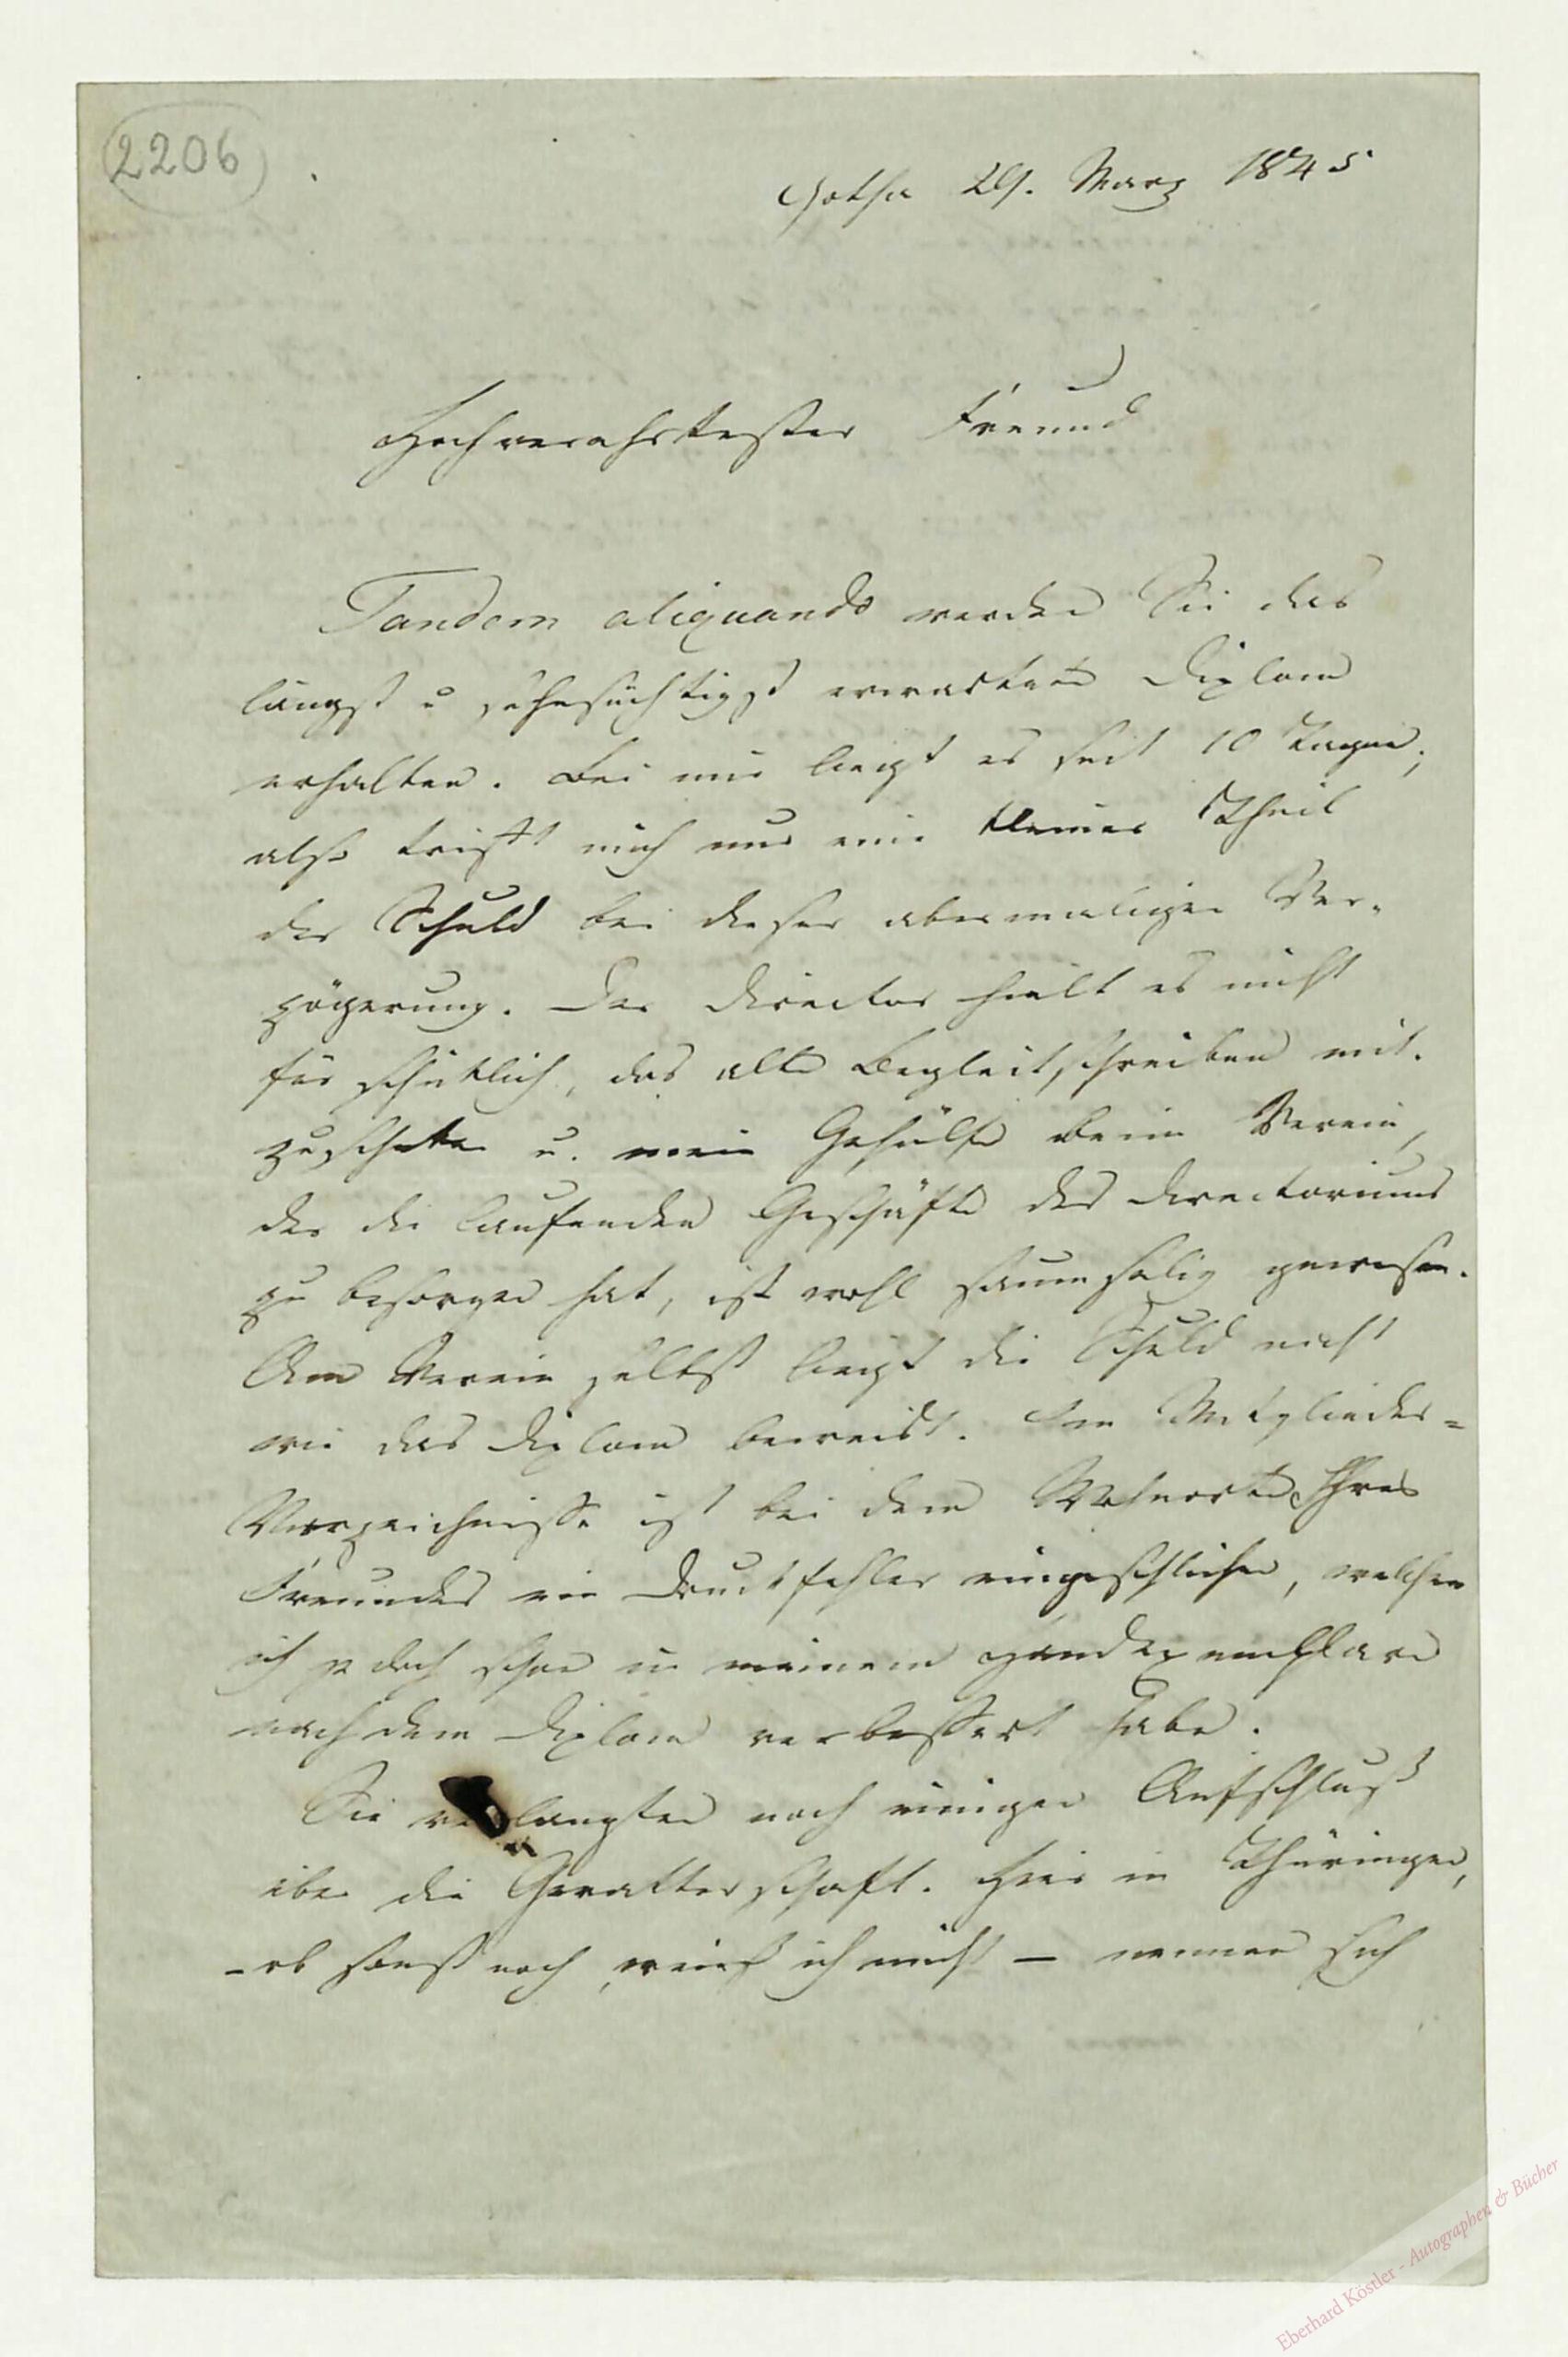 2206
Gotha 29. März 1845
Hochverehrtester Freund
Tandem aliquando werden Sie das
längst u sehnsüchtigst erwartete Diplom
erhalten. Bei mir liegt es seit 10 Tagen;
also trifft mich nur ein kleiner Theil
der Schuld bei dieser abermaligen Ver-
zögerung. Der Director hielt es nicht
für schicklich, das alte Begleitschreiben mit-
zuschicken u. mein Gehülfe beim Verein,
der die laufenden Geschäfte des Directoriums
zu besorgen hat, ist wohl saumselig gewesen.
Am Verein selbst liegt die Schuld nicht
wie das Diplom beweist. Im Mitglieder=
Verzeichnisse ist bei dem Wohnorte Ihres
Freundes ein Druckfehler eingeschlichen, welchen
ich jedoch schon in meinem Handexemplare
nach dem Diplom verbessert habe.
Sie verlangten noch einigen Aufschluß
über die Gevatterschaft. Hier in Thüringen,
– ob sonst noch, weiß ich nicht – nennen sich
Eberhard Köstler - Autographen & Bücher